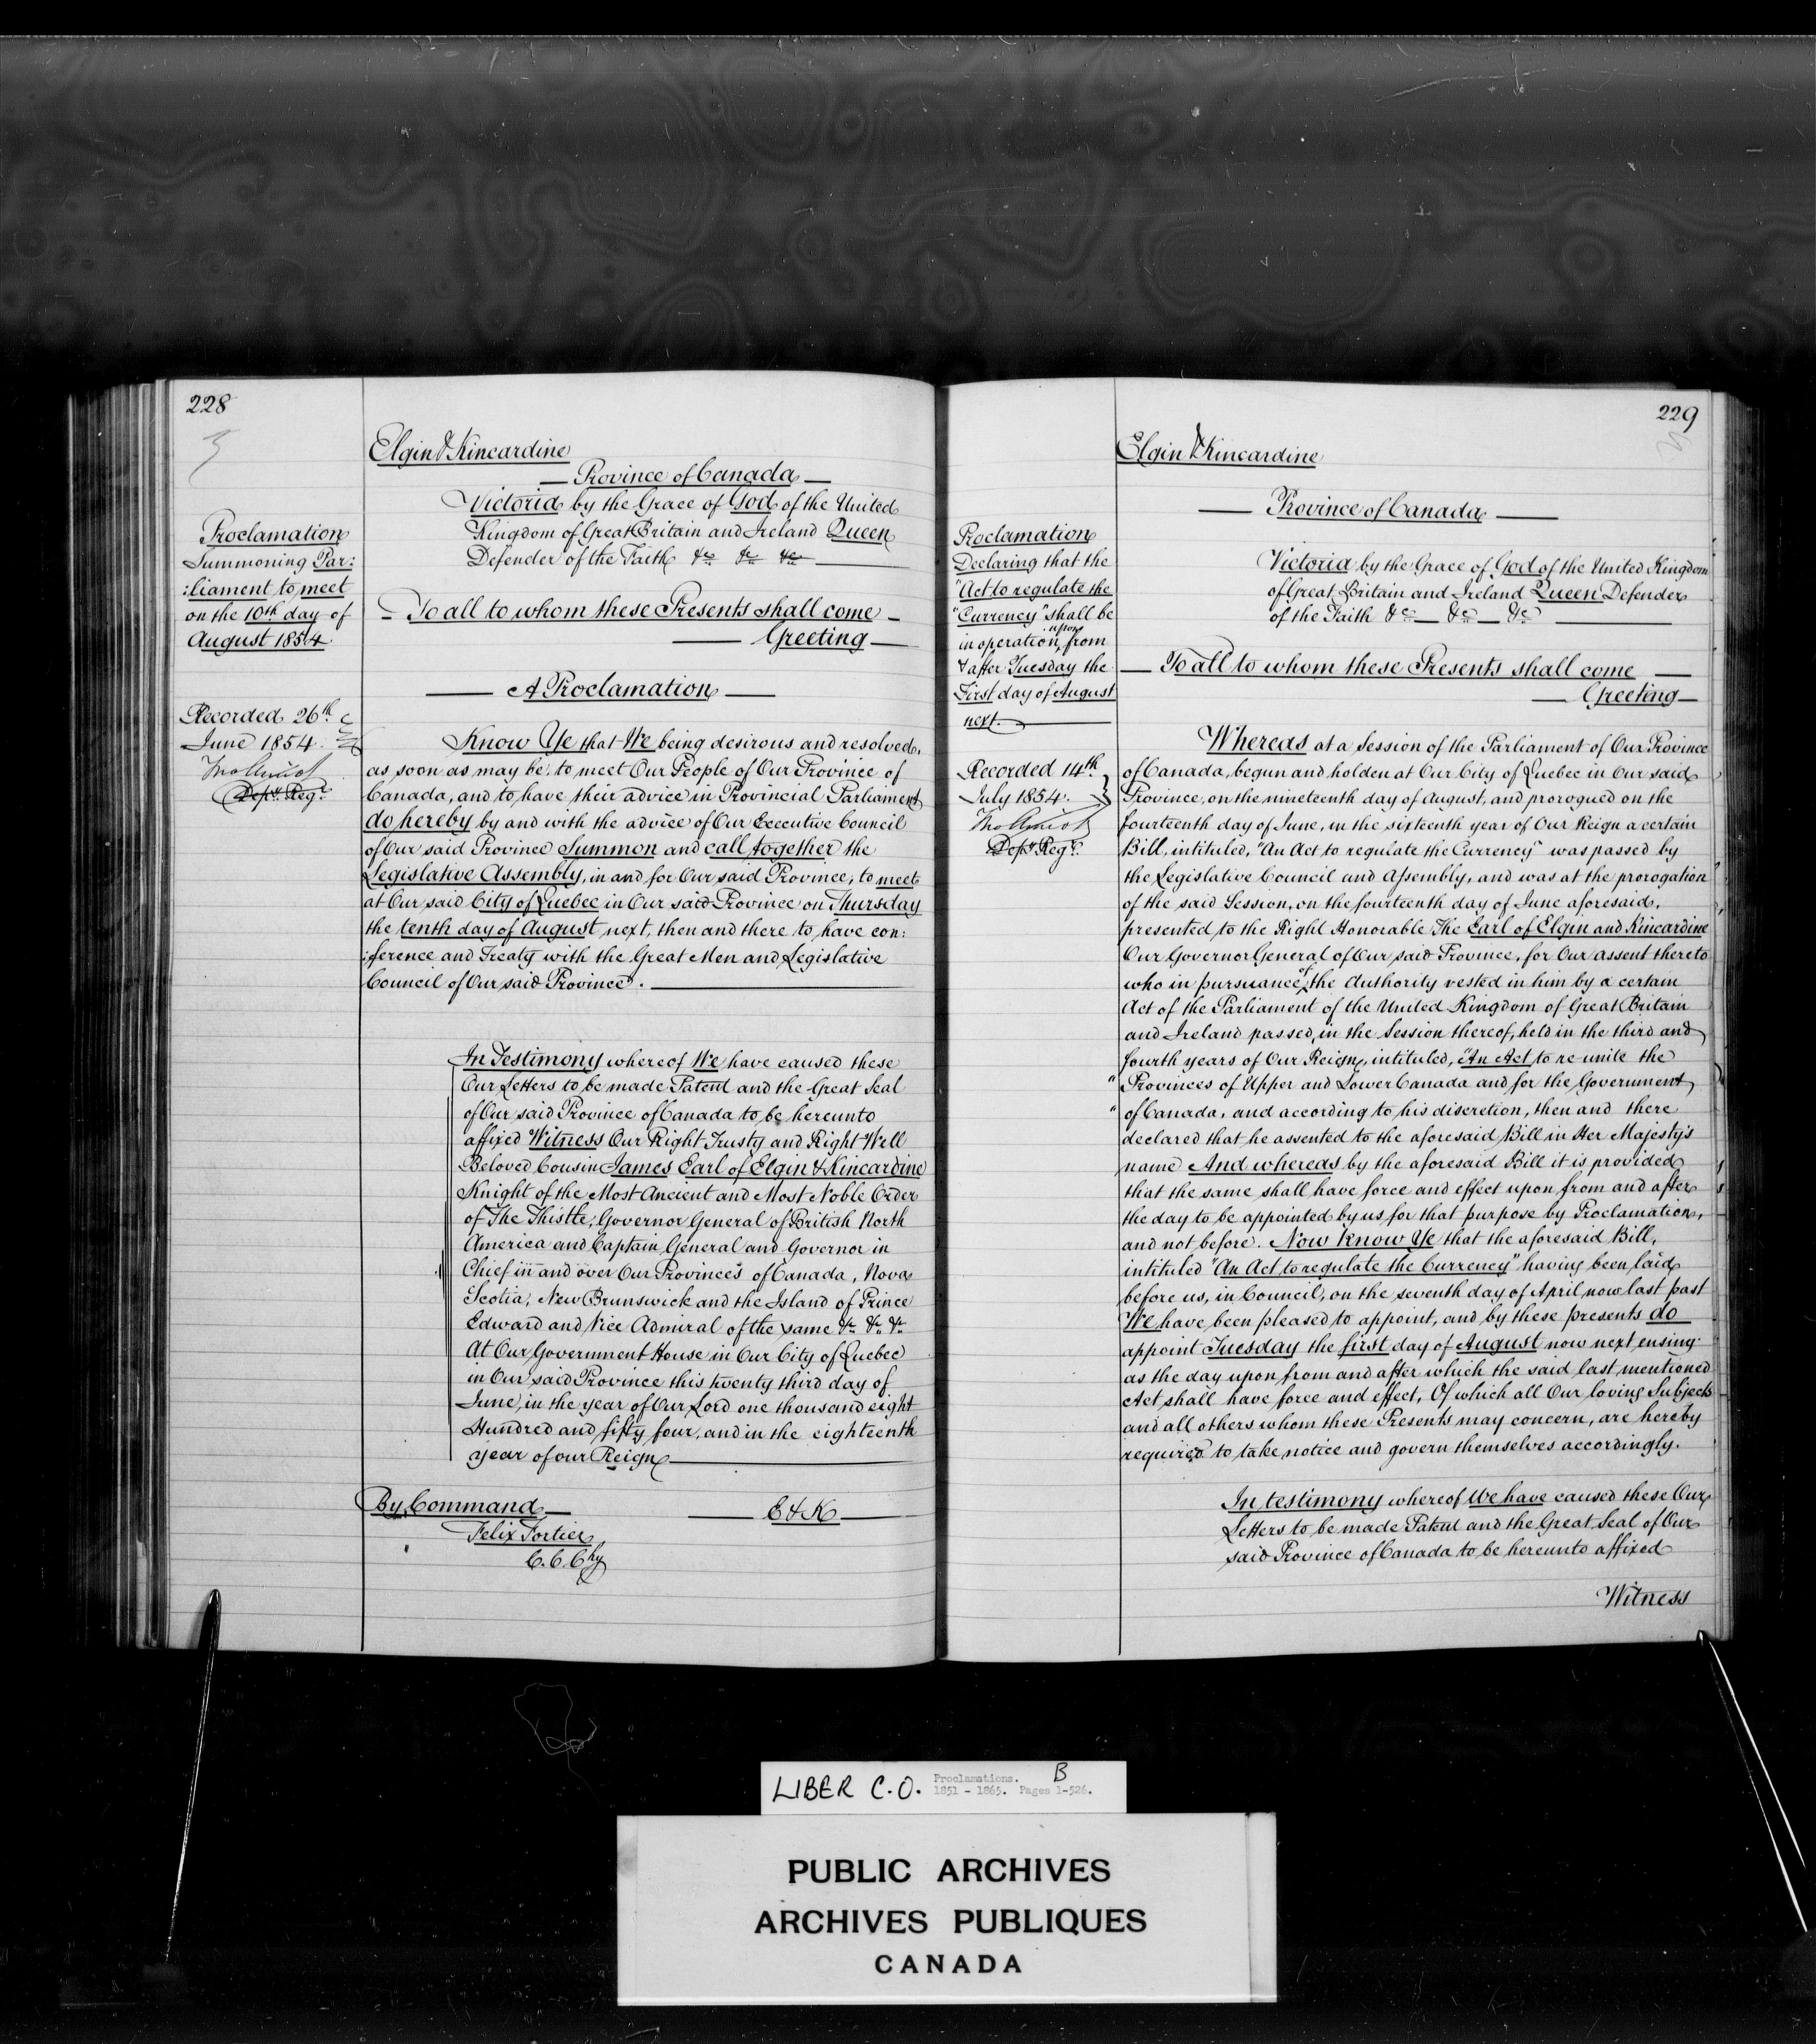 228
Elgin & Kincardine
Province of Canada
Victoria by the Grace of God of the United
Kingdom of Great Britain and Ireland Queen
Defender of the Faith &c &c &c
To all to whom these Presents shall come
Greeting
A Proclamation
Proclamation
Summoning Par:
:liament to meet
on the 10th day of
August 1854.
Recorded 26th
June 1854.
Depy. Regr.
Know Ye that We being desirous and resolved,
as soon as may be, to meet Our People of Our Province of
Canada, and to have their advice in Provincial Parliament
do hereby by and with the advice of Our Executive Council
of Our said Province Summon and call together the
Legislative Assembly, in and for Our said Province, to meet
at Our said City of Quebec in Our said Province on Thursday
the tenth day of August next, then and there to have con:
:ference and Treaty with the Great Men and Legislative
Council of Our said Province.
In Testimony whereof We have caused these
Our Letters to be made Patent and the Great Seal
of Our said Province of Canada to be hereunto
affixed Witness Our Right Trusty and Right Well
Beloved Cousin James Earl of Elgin & Kincardine
Knight of the Most Ancient and Most Noble Order
of The Thistle, Governor General of British North
America and Captain General and Governor in
Chief in and over Our Provinces of Canada, Nova
Scotia, New Brunswick and the Island of Prince
Edward and Vice Admiral of the same &c &c &c
At Our Government House in Our City of Quebec
in Our said Province this twenty third day of
June, in the year of Our Lord one thousand eight
Hundred and fifty four, and in the eighteenth
year of our Reign
By Command
E & K
Felix Fortier
C. C. Chy
229
Elgin & Kincardine
Province of Canada
Victoria by the Grace of God of the United Kingdom
of Great Britain and Ireland Queen Defender
of the Faith &c &c &c
To all to whom these Presents shall come
Greeting
Proclamation
Declaring that the
"Act to regulate the
"Currency" shall be
in operation upon from
& after Tuesday the
First day of August
next.
Recorded 14th
July 1854.
Depy. Regr.
Whereas at a Session of the Parliament of Our Province
of Canada, begun and holden at Our City of Quebec in Our said
Province, on the nineteenth day of August, and prorogued on the
fourteenth day of June, in the sixteenth year of Our Reign a certain
Bill, intituled, "An Act to regulate the Currency" was passed by
the Legislative Council and Assembly, and was at the prorogation
of the said Session, on the fourteenth day of June aforesaid,
presented to the Right Honorable The Earl of Elgin and Kincardine
Our Governor General of Our said Province, for Our assent thereto
who in pursuance of the Authority vested in him by a certain
Act of the Parliament of the United Kingdom of Great Britain
and Ireland passed, in the Session thereof, held in the third and
fourth years of Our Reign, intituled, "An Act to re unite the
" Provinces of Upper and Lower Canada and for the Government
" of Canada, and according to his discretion, then and there
declared that he assented to the aforesaid Bill in Her Majesty's
name And whereas by the aforesaid Bill it is provided
that the same shall have force and effect upon from and after
the day to be appointed by us for that purpose by Proclamation,
and not before. Now Know Ye that the aforesaid Bill,
intituled "An Act to regulate the Currency" having been laid
before us, in Council, on the seventh day of April now last past
We have been pleased to appoint, and by these presents do
appoint Tuesday the first day of August now next ensing
as the day upon from and after which the said last mentioned
Act shall have force and effect, Of which all Our loving Subjects
and all others whom these Presents may concern, are hereby
required to take notice and govern themselves accordingly.
In testimony whereof We have caused these Our
Letters to be made Patent and the Great Seal of Our
said Province of Canada to be hereunto affixed
Witness
LIBER C.O. Proclamations. B
1851 - 1865. Pages 1-526.
PUBLIC ARCHIVES
ARCHIVES PUBLIQUES
CANADA